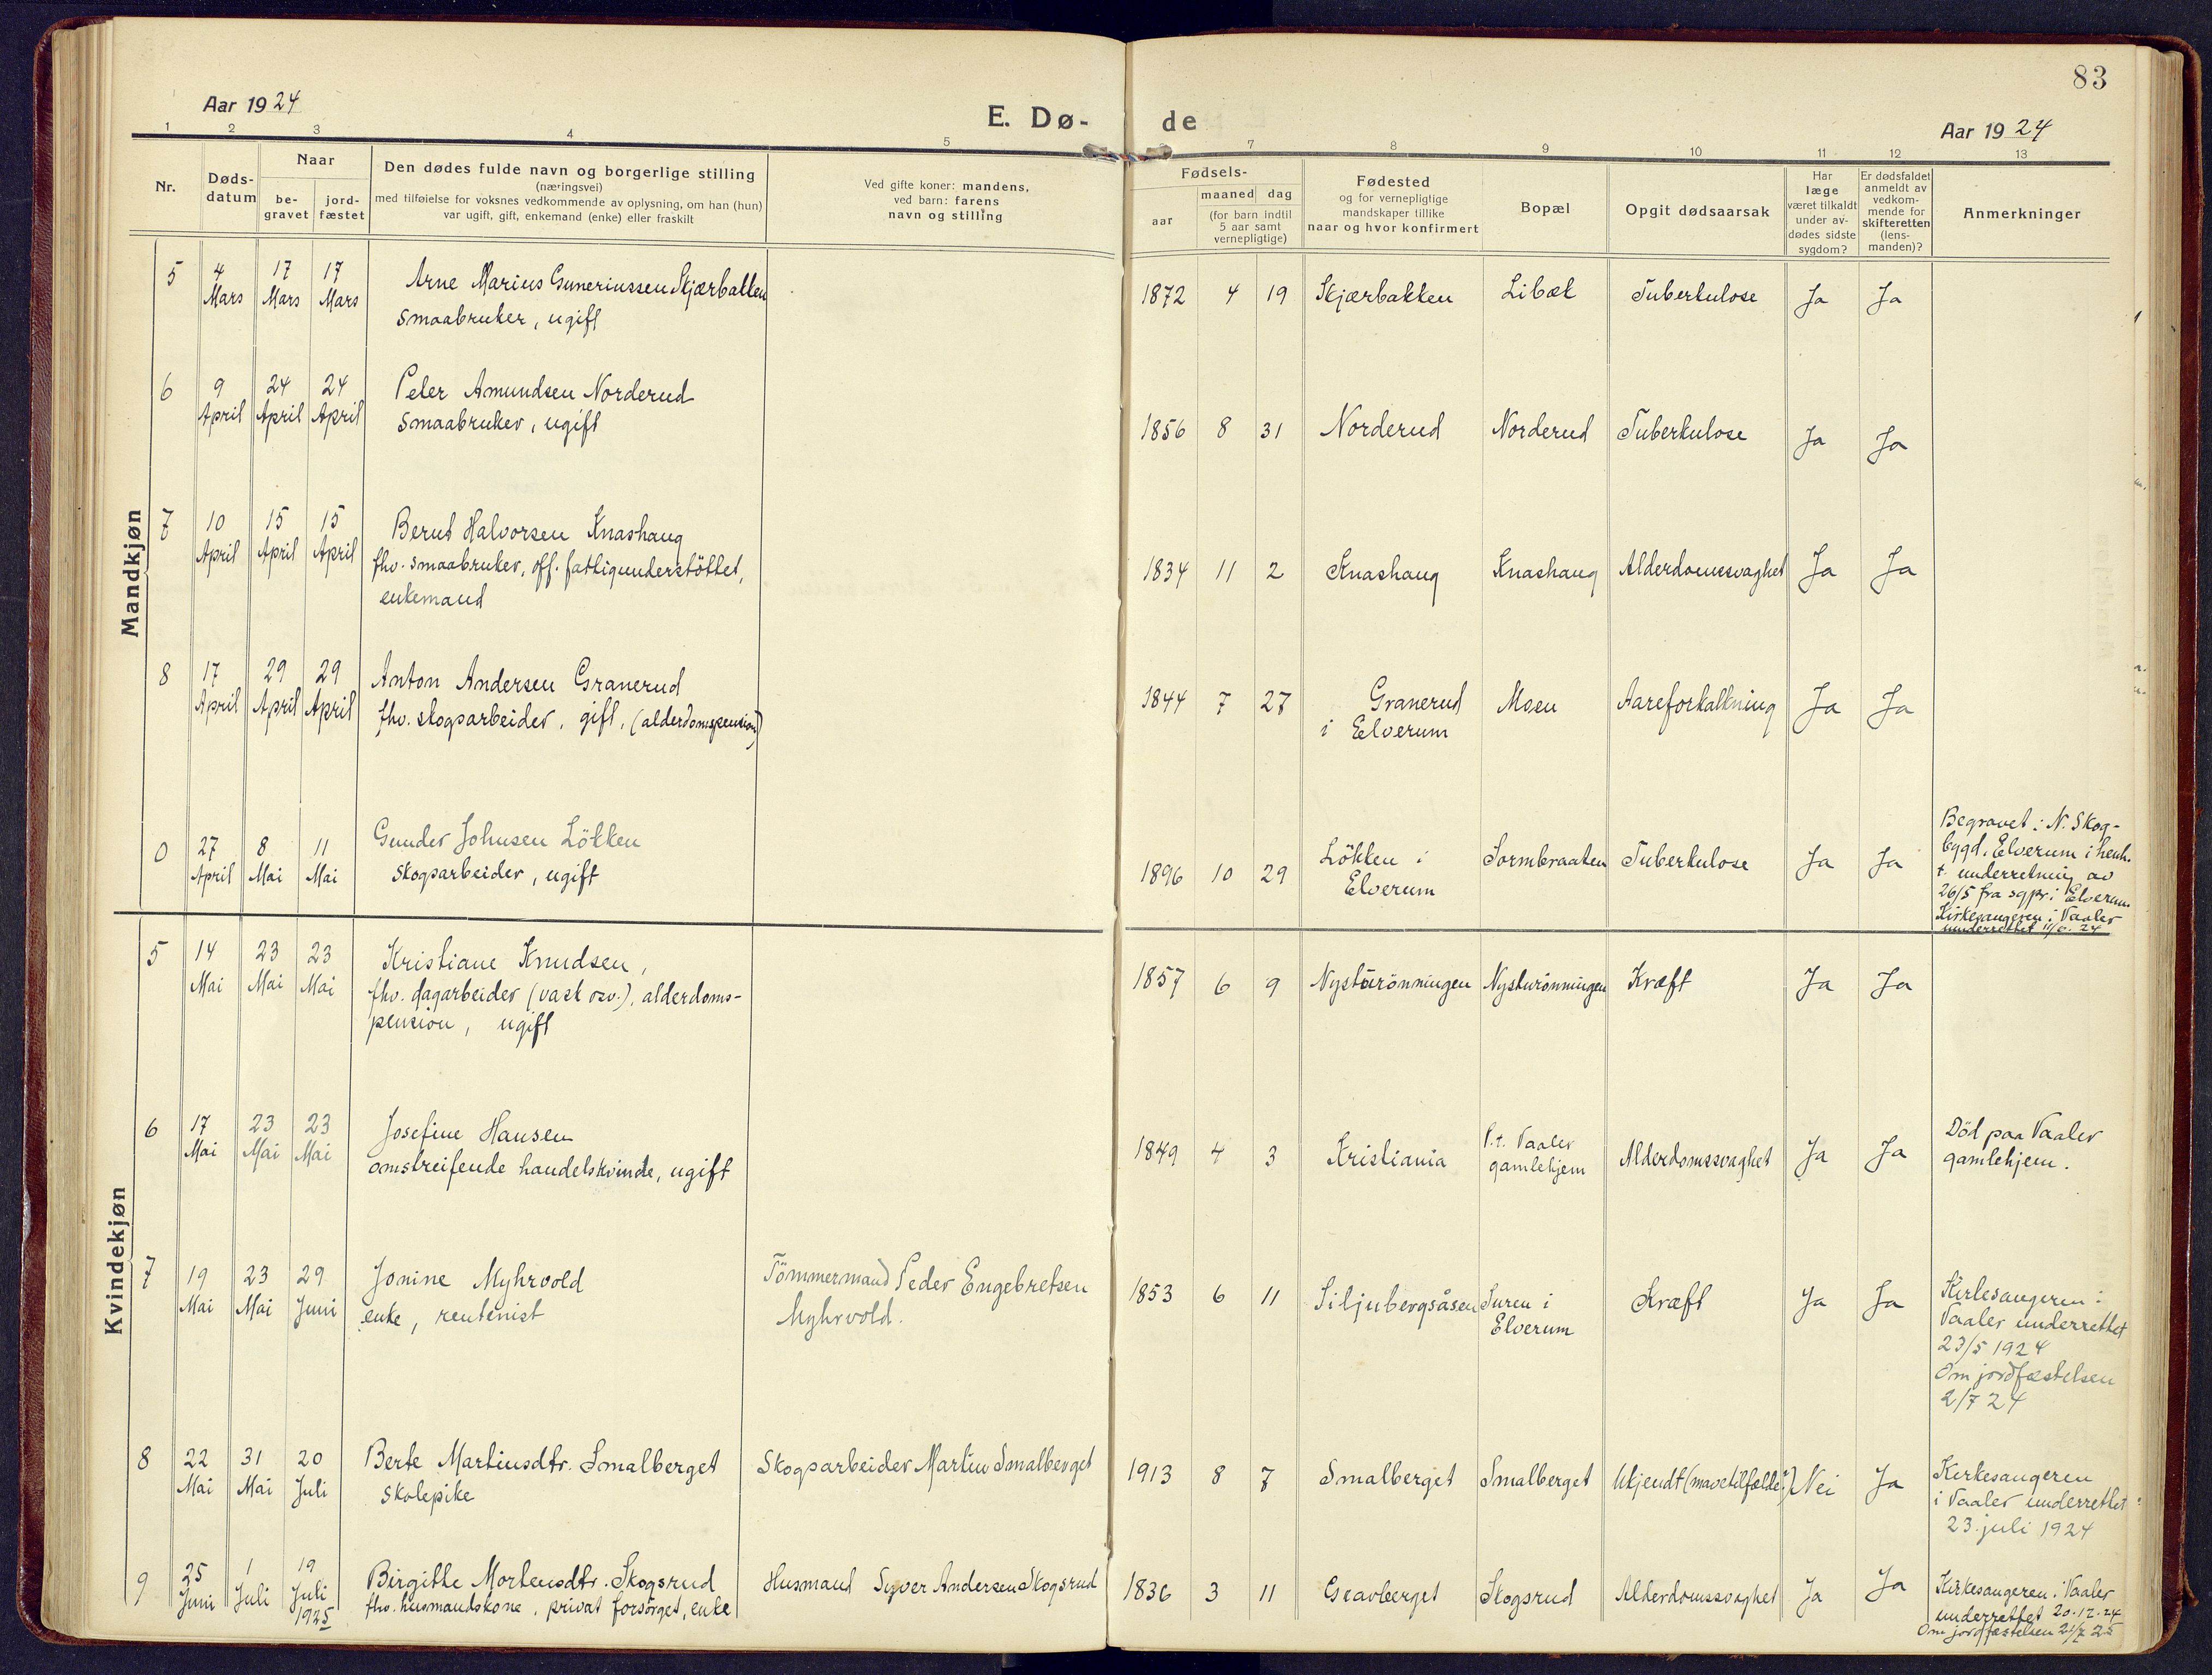 83
Aar 1924
E. Dø-
de
Aar 1924
1 2 3 4 5 7 8 9 10 11 12 13
Nr.
Døds-
datum
Naar
be-
gravet
jord-
fæstet
Den dødes fulde navn og borgerlige stilling
(næringsvei)
med tilføielse for voksnes vedkommende av oplysning, om han (hun)
var ugift, gift, enkemand (enke) eller fraskilt
Ved gifte koner: mandens,
ved barn: farens
navn og stilling
Fødsels-
aar
maaned dag
(for barn indtil
5 aar samt
vernepligtige)
Fødested
og for vernepligtige
mandskaper tillike
naar og hvor konfirmert
Bopæl
Opgit dødsaarsak
Har
læge
været tilkaldt
under av-
dødes sidste
sygdom?
Er dødsfaldet
anmeldt av
vedkom-
mende for
skifteretten
(lens-
manden)?
Anmerkninger
Mandkjøn
5
4
Mars
17
Mars
17
Mars
Arne Marius Guneriussen Skjærbakken
smaabruker, ugift
1872 4 19 Skjærbakken Libæk Tuberkulose Ja Ja
6
9
April
24
April
24
April
Peter Amundsen Norderud
smaabruker, ugift
1856 8 31 Norderud Norderud Tuberkulose Ja Ja
7
10
April
15
April
15
April
Bernt Halvorsen Knashaug
fhv. smaabruker, off. fattigunderstöttet,
enkemand
1834 11 2 Knashaug Knashaug Alderdomssvaghet Ja Ja
8
17
April
29
April
29
April
Anton Andersen Granerud
fhv. skogsarbeider, gift, (alderdomspension)
1844 7 27 Granerud
i Elverum
Moen Aareforkalkning Ja Ja
0
27
April
8
Mai
11
Mai
Gunder Johnsen Lökken
skogsarbeider, ugift
1896 10 29 Lökken i
Elverum
Sormbraaten Tuberkulose Ja Ja
Begravet i N. Skog-
bygd, Elverum i henh.
t. underretning av
26/5 fra sgpr. i Elverum.
Kirkesangeren i Vaaler
underrettet 11/6. 24
Kvindekjøn
5
14
Mai
23
Mai
23
Mai
Kristiane Knudsen,
fhv. dagarbeider (vask osv.), alderdoms-
pension, ugift
1857 6 9 Nysturönningen Nysturönningen Kræft Ja Ja
6
17
Mai
23
Mai
23
Mai
Josefine Hansen
omstreifende handelskvinde, ugift
1849 4 3 Kristiania
P.t. Vaaler
gamlehjem
Alderdomssvaghet Ja Ja
Död paa Vaaler
gamlehjem.
7
19
Mai
23
Mai
29
Juni
Jonine Myhrvold
enke, rentenist
Tömmermand Peder Engebretsen
Myhrvold.
1853 6 11 Siljubergsåsen
Furen i
Elverum
Kræft Ja Ja
Kirkesangeren i
Vaaler underrettet
23/5 1924
Om jordfæstelsen
2/7 24
8
22
Mai
31
Mai
20
Juli
Berte Martinsdtr. Smalberget
skolepike
Skogsarbeider Martin Smalberget
1913 8 7 Smalberget Smalberget Ukjendt (mavetilfælde?) Nei Ja
Kirkesangeren
i Vaaler underrettet
23. juli 1924
9
25
Juni
1
Juli
19
Juli
1925
Birgitte Mortensdtr. Skogsrud
fhv. husmandskone, privat forsörget, enke
Husmand Syver Andersen Skogsrud
1836 3 11 Gravberget Skogsrud Alderdomssvaghet Ja Ja
Kirkesangeren i Vaaler
underrettet 20.12.24
Om jordfæstelsen 21/7 25